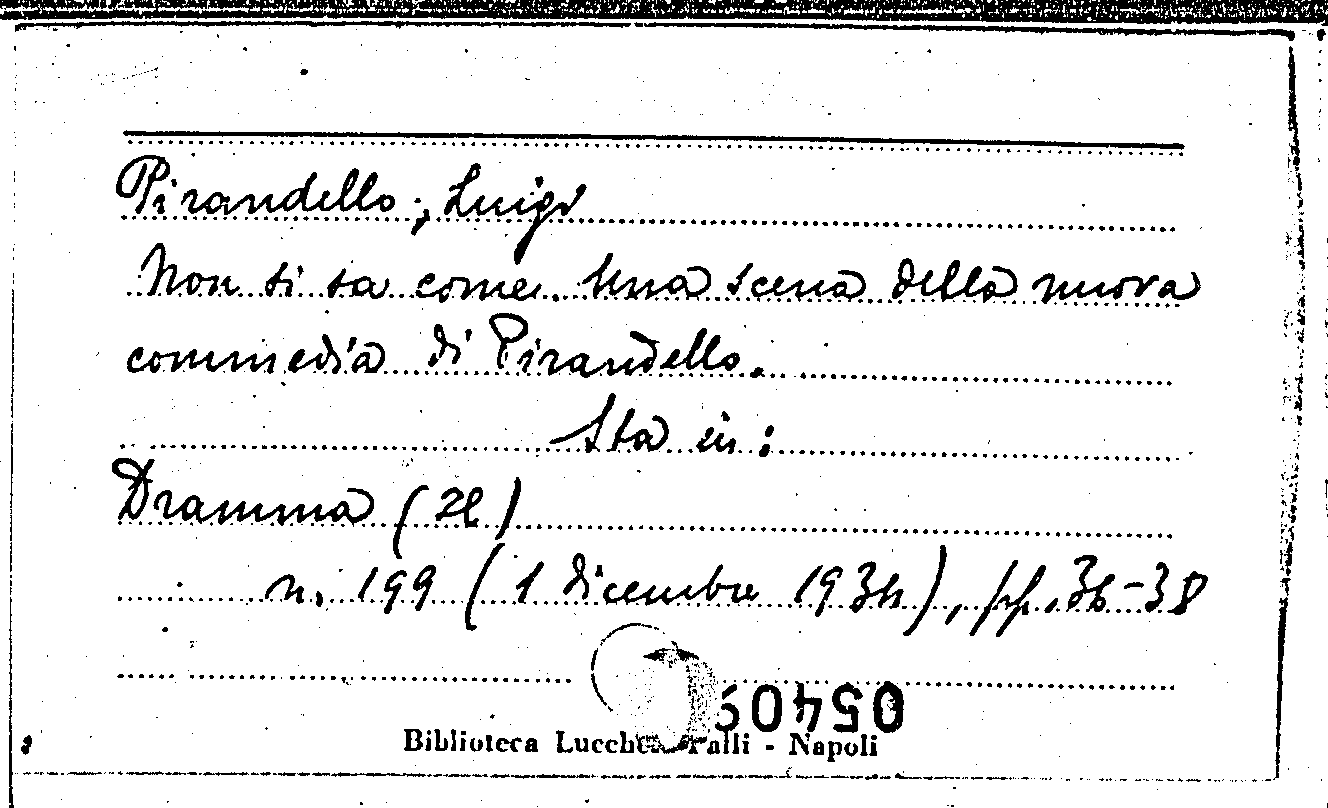 Pirandello, Luigi
Non si sa come. Una scena della nuova
commedia di Pirandello.
Sta in:
Dramma (Il)
n. 199 (1 dicembre 1934), pp. 36-38
Biblioteca Lucchesi Palli - Napoli